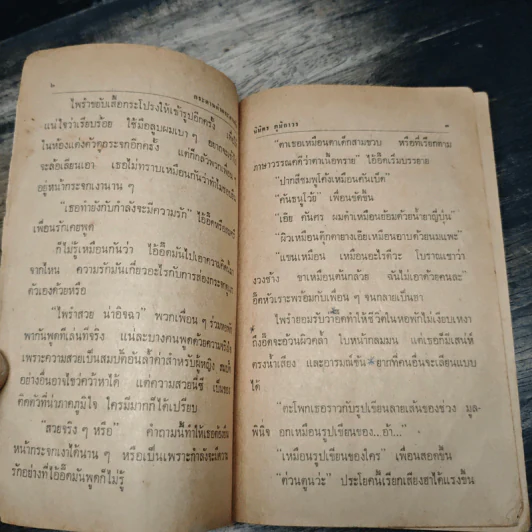 ๖
ไพรำขยับเสื้อกระโปรงให้เข้ารูปอีกครั้ง
แน่ใจว่าเรียบร้อย ใช้มือลูบผมเบา ๆ
ในห้องแต่งตัวดูกระจกอีกครั้ง แต่ก็กลัวพวกเพื่อน
จะล้อเลียนเอา เธอไม่ทราบเหมือนกันว่าทำไมชอบ
อยู่หน้ากระจกเงานาน ๆ
"เธอทำยังกับกำลังจะมีความรัก" ไอ้อี๊ด
เพื่อนรักเคยพูด
ก็ไม่รู้เหมือนกันว่า ไอ้อี๊ดมันไปเอาความคิดนี้มา
จากไหน ความรักมันเกี่ยวอะไรกับการส่องกระจกดู
ตัวเองด้วยหรือ
"ไพรำสวย น่าอิจฉา" พวกเพื่อน ๆ ร่วมหอพัก
พากันพูดทีเล่นทีจริง และบางคนพูดด้วยความจริงใจ
เพราะความสวยเป็นสมบัติอันล้ำค่าสำหรับผู้หญิง สมบัติ
อย่างอื่นอาจไขว่คว้าหาได้ แต่ความสวยนี่ซี เป็นของ
ติดตัวที่น่าภาคภูมิใจ ใครมีมากก็ได้เปรียบ
"สวยจริง ๆ หรือ" คำถามนี้ทำให้เธอต้องยืน
หน้ากระจกเงาได้นาน ๆ หรือเป็นเพราะกำลังจะมีความ
รักอย่างที่ไอ้อี๊ดมันพูดก็ไม่รู้
๗
"ตาเธอเหมือนตาเด็กสามขวบ หรือที่เรียกตาม
ภาษาวรรณคดีว่าตาเนื้อทราย" ไอ้อี๊ดเริ่มบรรยาย
"ปากสีชมพูโค้งเหมือนคันเบ็ด"
"คันธนูโว้ย" เพื่อนขัดขึ้น
"เอ้อ คันศร ผมดำเหมือนย้อมด้วยน้ำยาญี่ปุ่น"
"ผิวเหมือนตุ๊กตายางเอ๊ยเหมือนอาบด้วยนมแพะ"
"แขนเหมือน เหมือนอะไรดีวะ โบราณเขาว่า
งวงช้าง ขาเหมือนต้นกล้วย ฉันไม่เอาด้วยคนละ"
อี๊ดหัวเราะพร้อมกับเพื่อน ๆ จนกลายเป็นฮา
ไพรำยอมรับว่าอี๊ดทำให้ชีวิตในหอพักไม่เงียบเหงา
ถึงอี๊ดจะอ้วนผิวคล้ำ ใบหน้ากลมมน แต่เธอก็มีเสน่ห์
ตรงน้ำเสียง และอารมณ์ขัน ยากที่คนอื่นจะเลียนแบบ
ได้
"ตะโพกเธอราวกับรูปเขียนลายเส้นของช่วง มูล-
พินิจ อกเหมือนรูปเขียนของ...อ้า..."
"เหมือนรูปเขียนของใคร" เพื่อนสอดขึ้น
"ด่วนดูนว่ะ" ประโยคนี้เรียกเสียงฮาได้แรงขึ้น